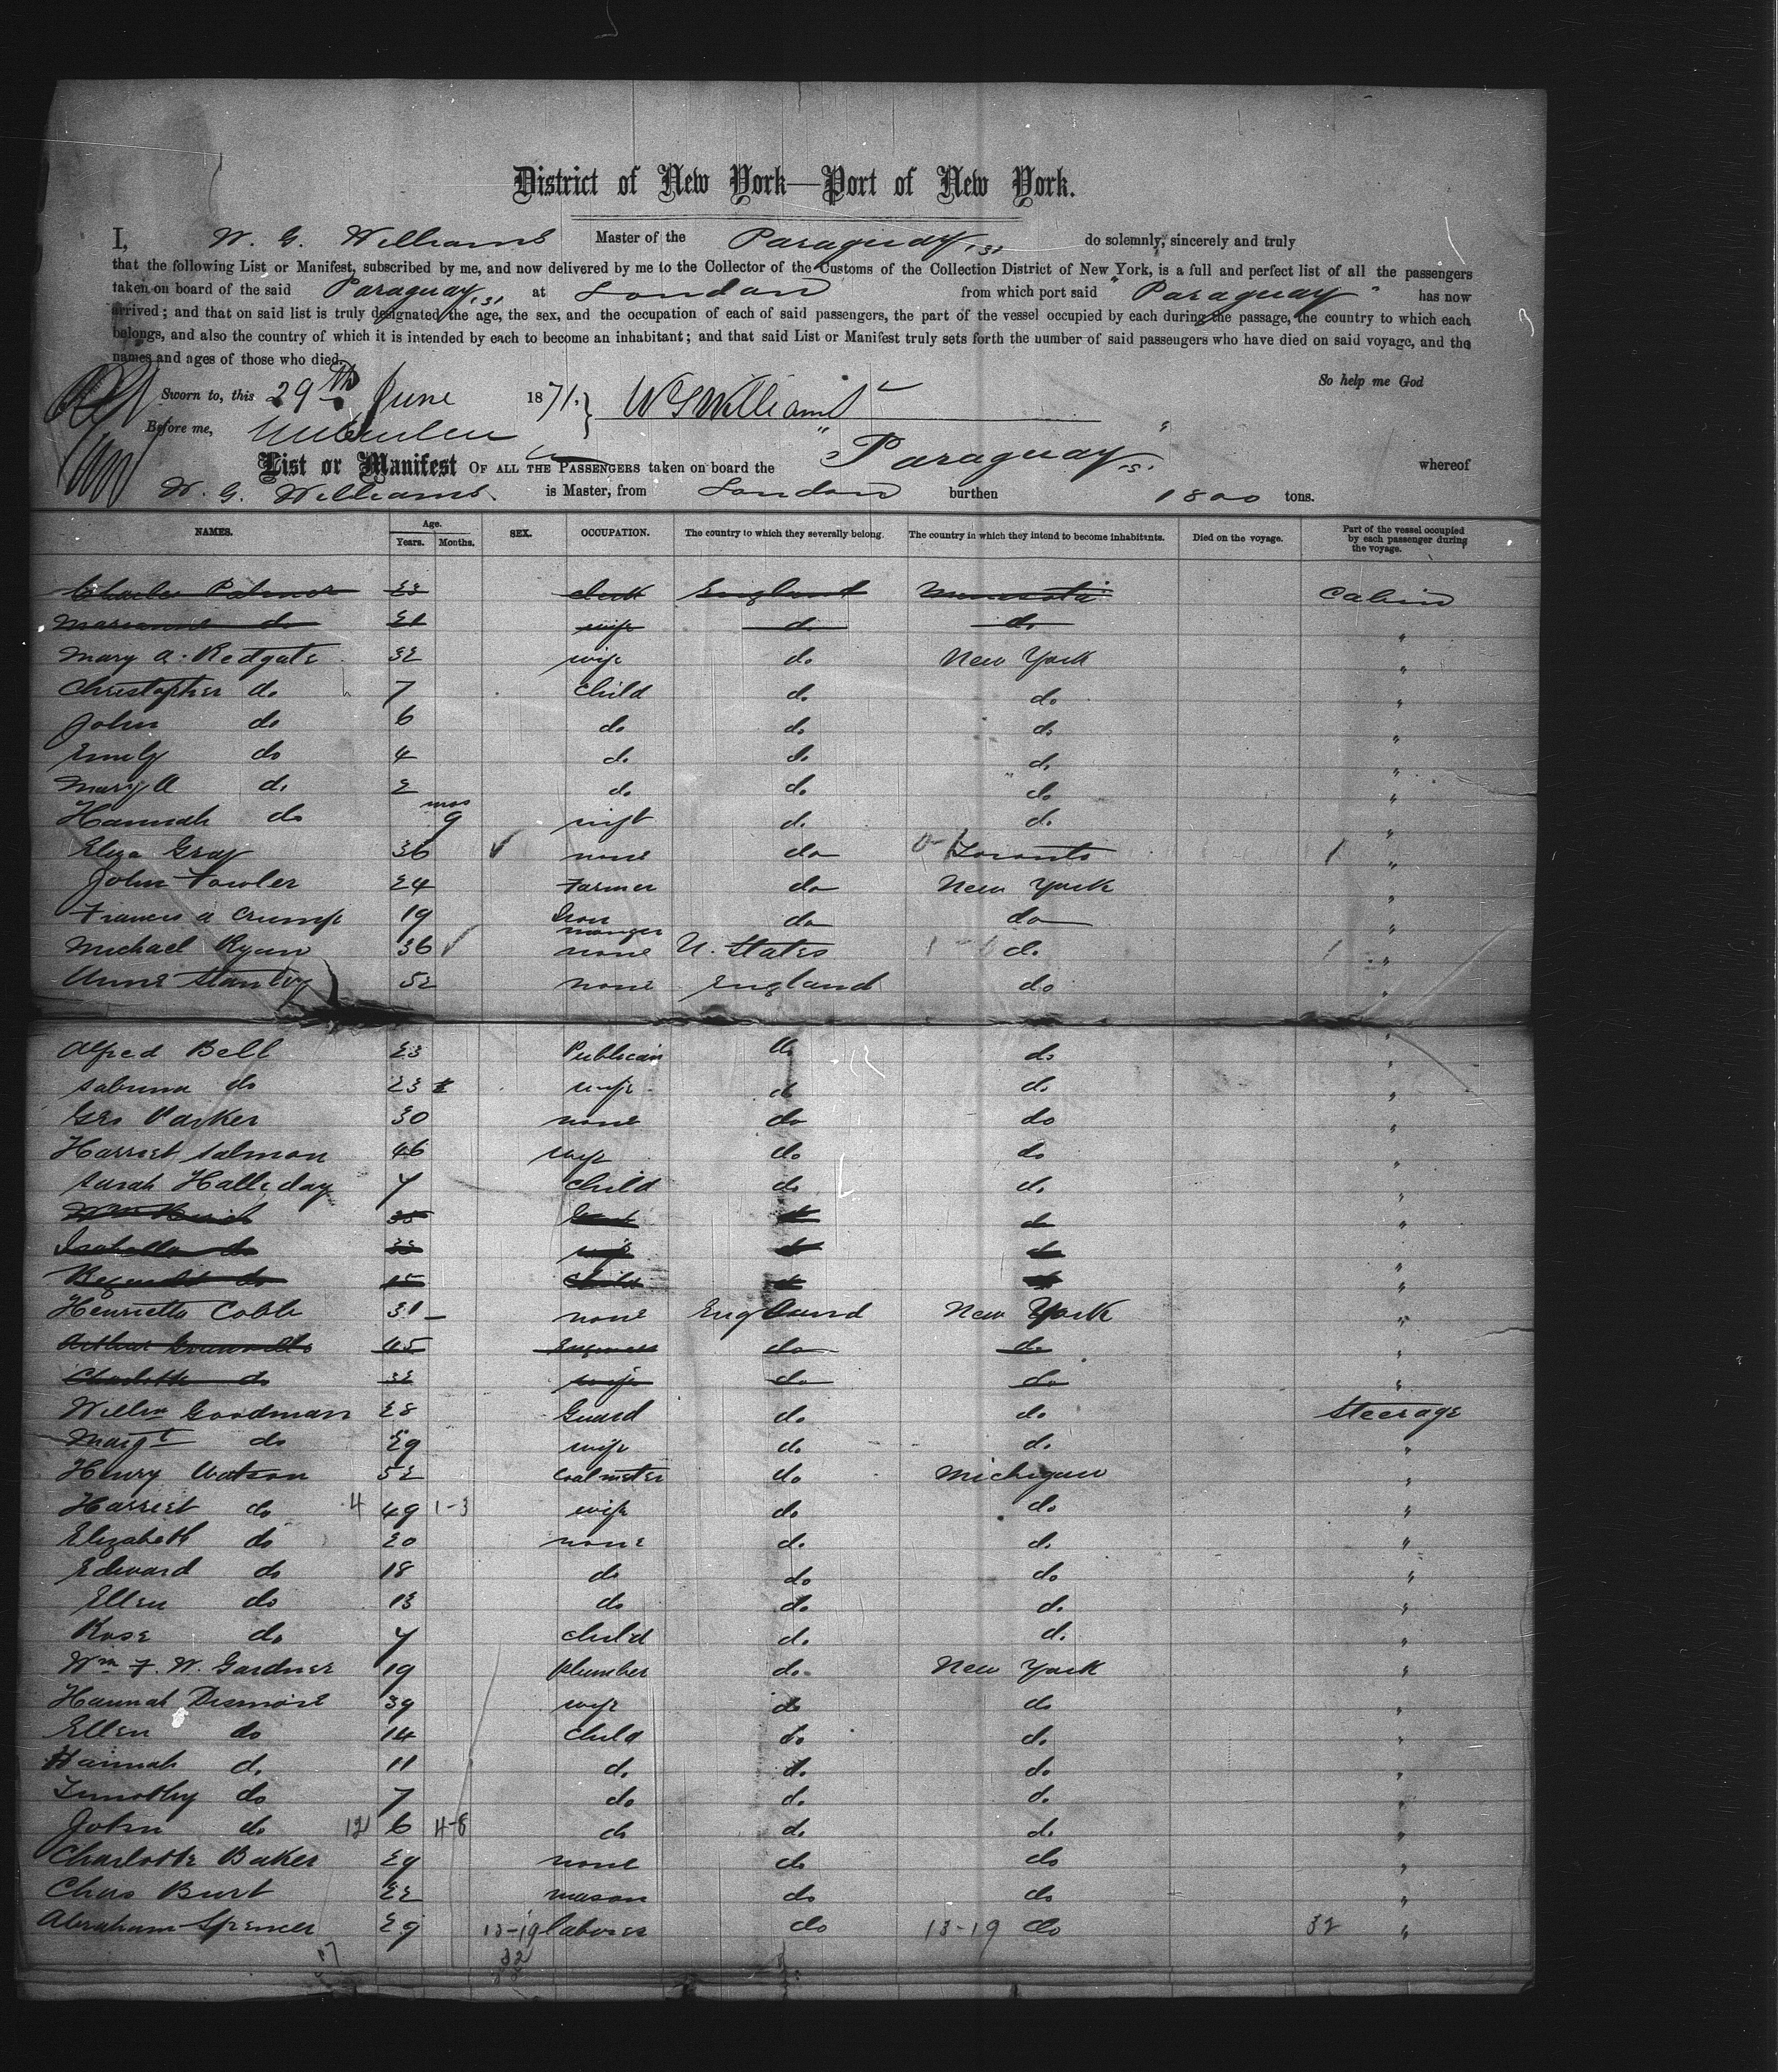 District of New York—Port of New York.
I, W. G. Williams Master of the Paraguay, s, do solemnly, sincerely and truly
that the following List or Manifest, subscribed by me, and now delivered by me to the Collector of the Customs of the Collection District of New York, is a full and perfect list of all the passengers
taken on board of the said Paraguay, s, at London from which port said "Paraguay" has now
arrived; and that on said list is truly designated the age, the sex, and the occupation of each of said passengers, the part of the vessel occupied by each during the passage, the country to which each
belongs, and also the country of which it is intended by each to become an inhabitant; and that said List or Manifest truly sets forth the number of said passengers who have died on said voyage, and the
names and ages of those who died.
So help me God
Sworn to, this 29th June 1871. } W G Williams
Before me,
List or Manifest OF ALL THE PASSENGERS taken on board the "Paraguay, s." whereof
W. G. Williams is Master, from London burthen 1800 tons.
NAMES. Age. Years. Months. SEX. OCCUPATION. The country to which they severally belong. The country in which they intend to become inhabitants. Died on the voyage. Part of the vessel occupied by each passenger during the voyage.
Charles Palmer clerk England Minnesota Cabin
Marianne do 21 wife do do "
Mary A. Redgate 32 wife do New York "
Christopher do 7 child do do "
John do 6 do do do "
Emily do 4 do do do "
Mary A do 2 do do do "
Hannah do mos 9 inft do do "
Eliza Gray 36 none do Toronto 1 "
John Fowler 24 Farmer do New York "
Francis A Crump 19 Iron monger do do "
Michael Ryan 36 none U. States do "
Anne Stanley 52 none England do "
Alfred Bell 23 Publican do do "
Sabrina do 23 wife do do "
Geo Parker 30 none do do "
Harriet Salmon 46 wife do do "
Sarah Halleday 7 child do do "
Wm 35 do "
Isabella do 33 wife do do "
do 15 child do do "
Henrietta Coble 31 none England New York "
Arthur 45 do do "
Charlotte do 32 wife do do "
Willm Goodman 28 Guard do do Steerage
Margt do 29 wife do do "
Henry Watson 52 do Michigan "
Harriet do 4 49 1-3 wife do do "
Elizabeth do 20 none do do "
Edward do 18 do do do "
Ellen do 13 do do do "
Rose do 7 child do do "
Wm F. W. Gardner 19 plumber do New York "
Hannah Dismore 39 wife do do "
Ellen do 14 child do do "
Hannah do 11 do do do "
Timothy do 7 do do do "
John do 12 6 4-8 do do do "
Charlotte Baker 29 none do do "
Chas Burt 22 mason do do "
Abraham Spencer 29 13-19 laborer do 13-19 do 32 "
17 32